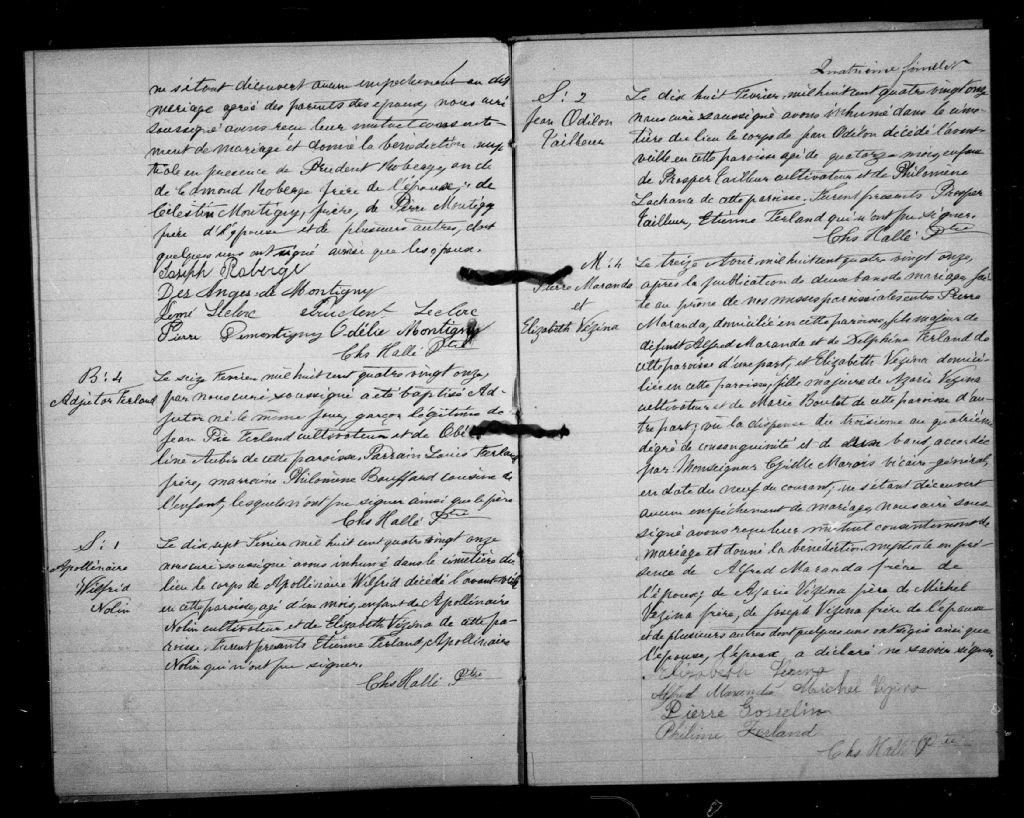 ne s'étant découvert aucun empêchement au dit
mariage agréé des parents des époux, nous curé
soussigné avons reçu leur mutuel consente-
ment de mariage et donné la bénédiction nup-
tiale en présence de Prudent Roberge, oncle
de Edmond Roberge frère de l'époux, de
Célestin Montigny, frère, de Pierre Montigny
père d l'épouse et de plusieurs autres, dont
quelques uns ont signé ainsi que les époux.
Joseph Roberge
Des Anges de Montigny
Leclerc Leclerc
Pierre Demontigny Odélie Montigny
Chs Hallé Ptre
B: 4
Adjutor Ferland
Le seize Fevrier mil huit cent quatre vingt onze,
par nous curé soussigné a été baptisé Ad-
jutor né le même jour, garçon légitime de
Jean Pie Ferland cultivateur et de Obé-
line Aubin de cette paroisse. Parrain Louis Ferland
frère, marraine Philomène Bouffard cousine de
l'enfant, lesquels n'ont pu signer ainsi que le père
Chs Hallé Ptre
S: 1
Apollinaire
Wilfrid
Nolin
Le dix sept Fevrier mil huit cent quatre vingt onze
nous curé soussigné avons inhumé dans le cimetière du
lieu le corps de Apollinaire Wilfrid décédé l'avant veille
en cette paroisse, agé d'un mois, enfant de Apollinaire
Nolin cultivateur et de Elizabeth Vézina de cette pa-
roisse. Furent présents Etienne Ferland, Apollinaire
Nolin qui n'ont pu signer.
Chs Hallé Ptre
Quatrième feuillet
S: 2
Jean Odilon
Tailleur
Le dix huit Fevrier mil huit cent quatre vingt onze
nous curé soussigné avons inhumé dans le cime-
tière du lieu le corps de Jean Odilon décédé l'avant-
veille en cette paroisse agé de quatorze mois, enfant
de Prosper Tailleur cultivateur et de Philomène
Lachance de cette paroisse. Furent présents Prosper
Tailleur, Etienne Ferland qui n'ont pu signer.
Chs Hallé Ptre
M: 4
Pierre Maranda
et
Elizabeth Vézina
Le treize Avril mil huit cent quatre vingt onze,
après la publication de deux bans de mariage fai-
te au prone de nos messes paroissiales entre Pierre
Maranda, domicilié en cette paroisse, fils majeur de
défunt Alfred Maranda et de Delphine Ferland de
cette paroisse d'une part, et Elizabeth Vézina domici-
liée en cette paroisse, fille majeure de Azarie Vézina
cultivateur et de Marie Boutet de cette paroisse d'au-
tre part; vu la dispense du troisième au quatrième
dégré de consanguinité et de bans, accordée
par Monseigneur Marois vicaire général,
en date du neuf du courant, ne s'étant découvert
aucun empêchement de mariage, nous curé sous-
signé avons reçu leur mutuel consentement de
mariage et donné la bénédiction nuptiale en pré-
sence de Alfred Maranda frère de
l'époux, de Azarie Vézina père de Michel
Vézina frère, de Joseph Vézina frère de l'épouse
et de plusieurs autres dont quelques uns ont signé ainsi que
l'épouse, l'époux a déclaré ne savoir signer.
Elizabeth Vézina
Alfred Maranda Michel Vézina
Pierre Gosselin
Philime Ferland
Chs Hallé Ptre